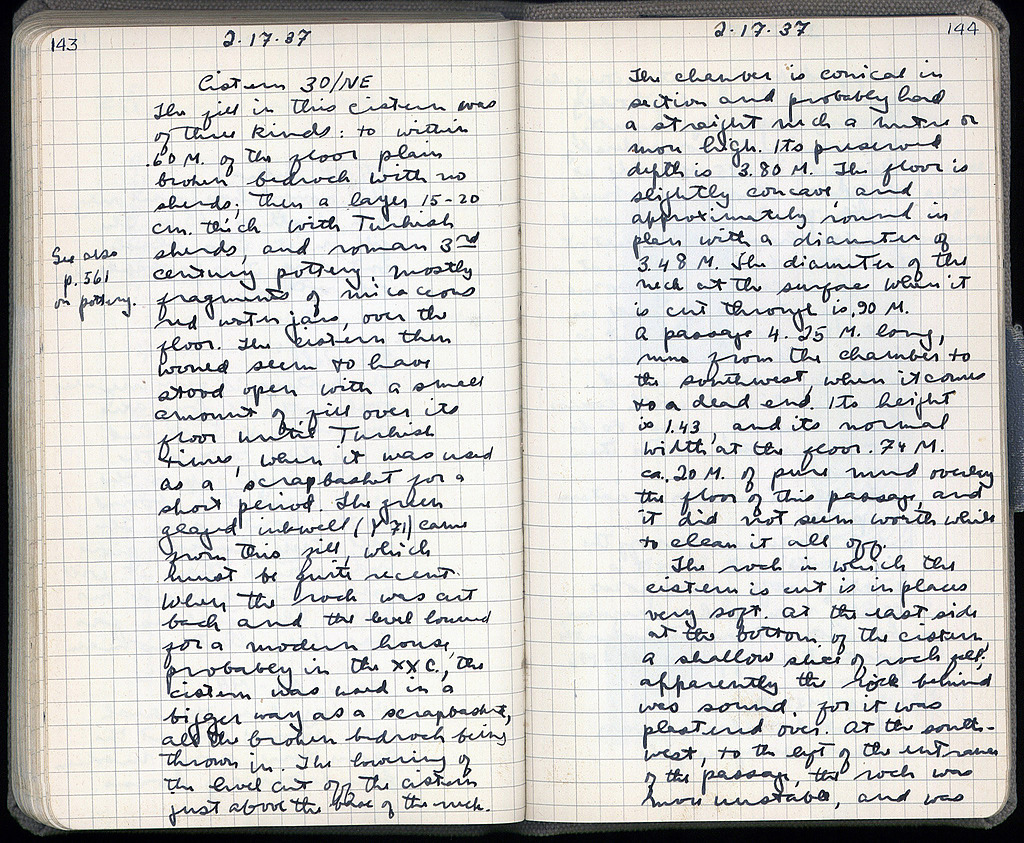 143
2·17·37
Cistern 30/NE
The fill in this cistern was
of three kinds: to within
.60 M. of the floor plain
broken bedrock with no
sherds; then a layer 15-20
cm. thick with Turkish
sherds, and roman 3rd
century pottery, mostly
fragments of micaceous
red water jars, over the
floor. The cistern then
would seem to have
stood open with a small
amount of fill over its
floor until Turkish
times, when it was used
as a scrapbasket for a
short period. The green
glazed inkwell (71) came
from this fill, which
must be quite recent.
When the rock was cut
back and the level lowered
for a modern house,
probably in the XX C., the
cistern was used in a
bigger way as a scrapbasket,
all the broken bedrock being
thrown in. The lowering of
the level cut off the cistern
just above the base of the neck.
See also
p. 561
on pottery.
144
2·17·37
The chamber is conical in
section and probably had
a straight neck a metre or
more high. Its preserved
depth is 3.80 M. The floor is
slightly concave, and
approximately round in
plan with a diameter of
3.48 M. The diameter of the
neck at the surface where it
is cut through is .90 M.
A passage 4.25 M. long,
runs from the chamber to
the southwest, where it comes
to a dead end. Its height
is 1.43, and its normal
width at the floor .74 M.
ca. .20 M. of pure mud overlay
the floor of this passage, and
it did not seem worth while
to clean it all off.
The rock in which the
cistern is cut is in places
very soft. At the east side
at the bottom of the cistern,
a shallow slice of rock fell;
apparently the rock behind
was sound, for it was
plastered over. At the south-
west, to the left of the entrance
of the passage, the rock was
more unstable, and was